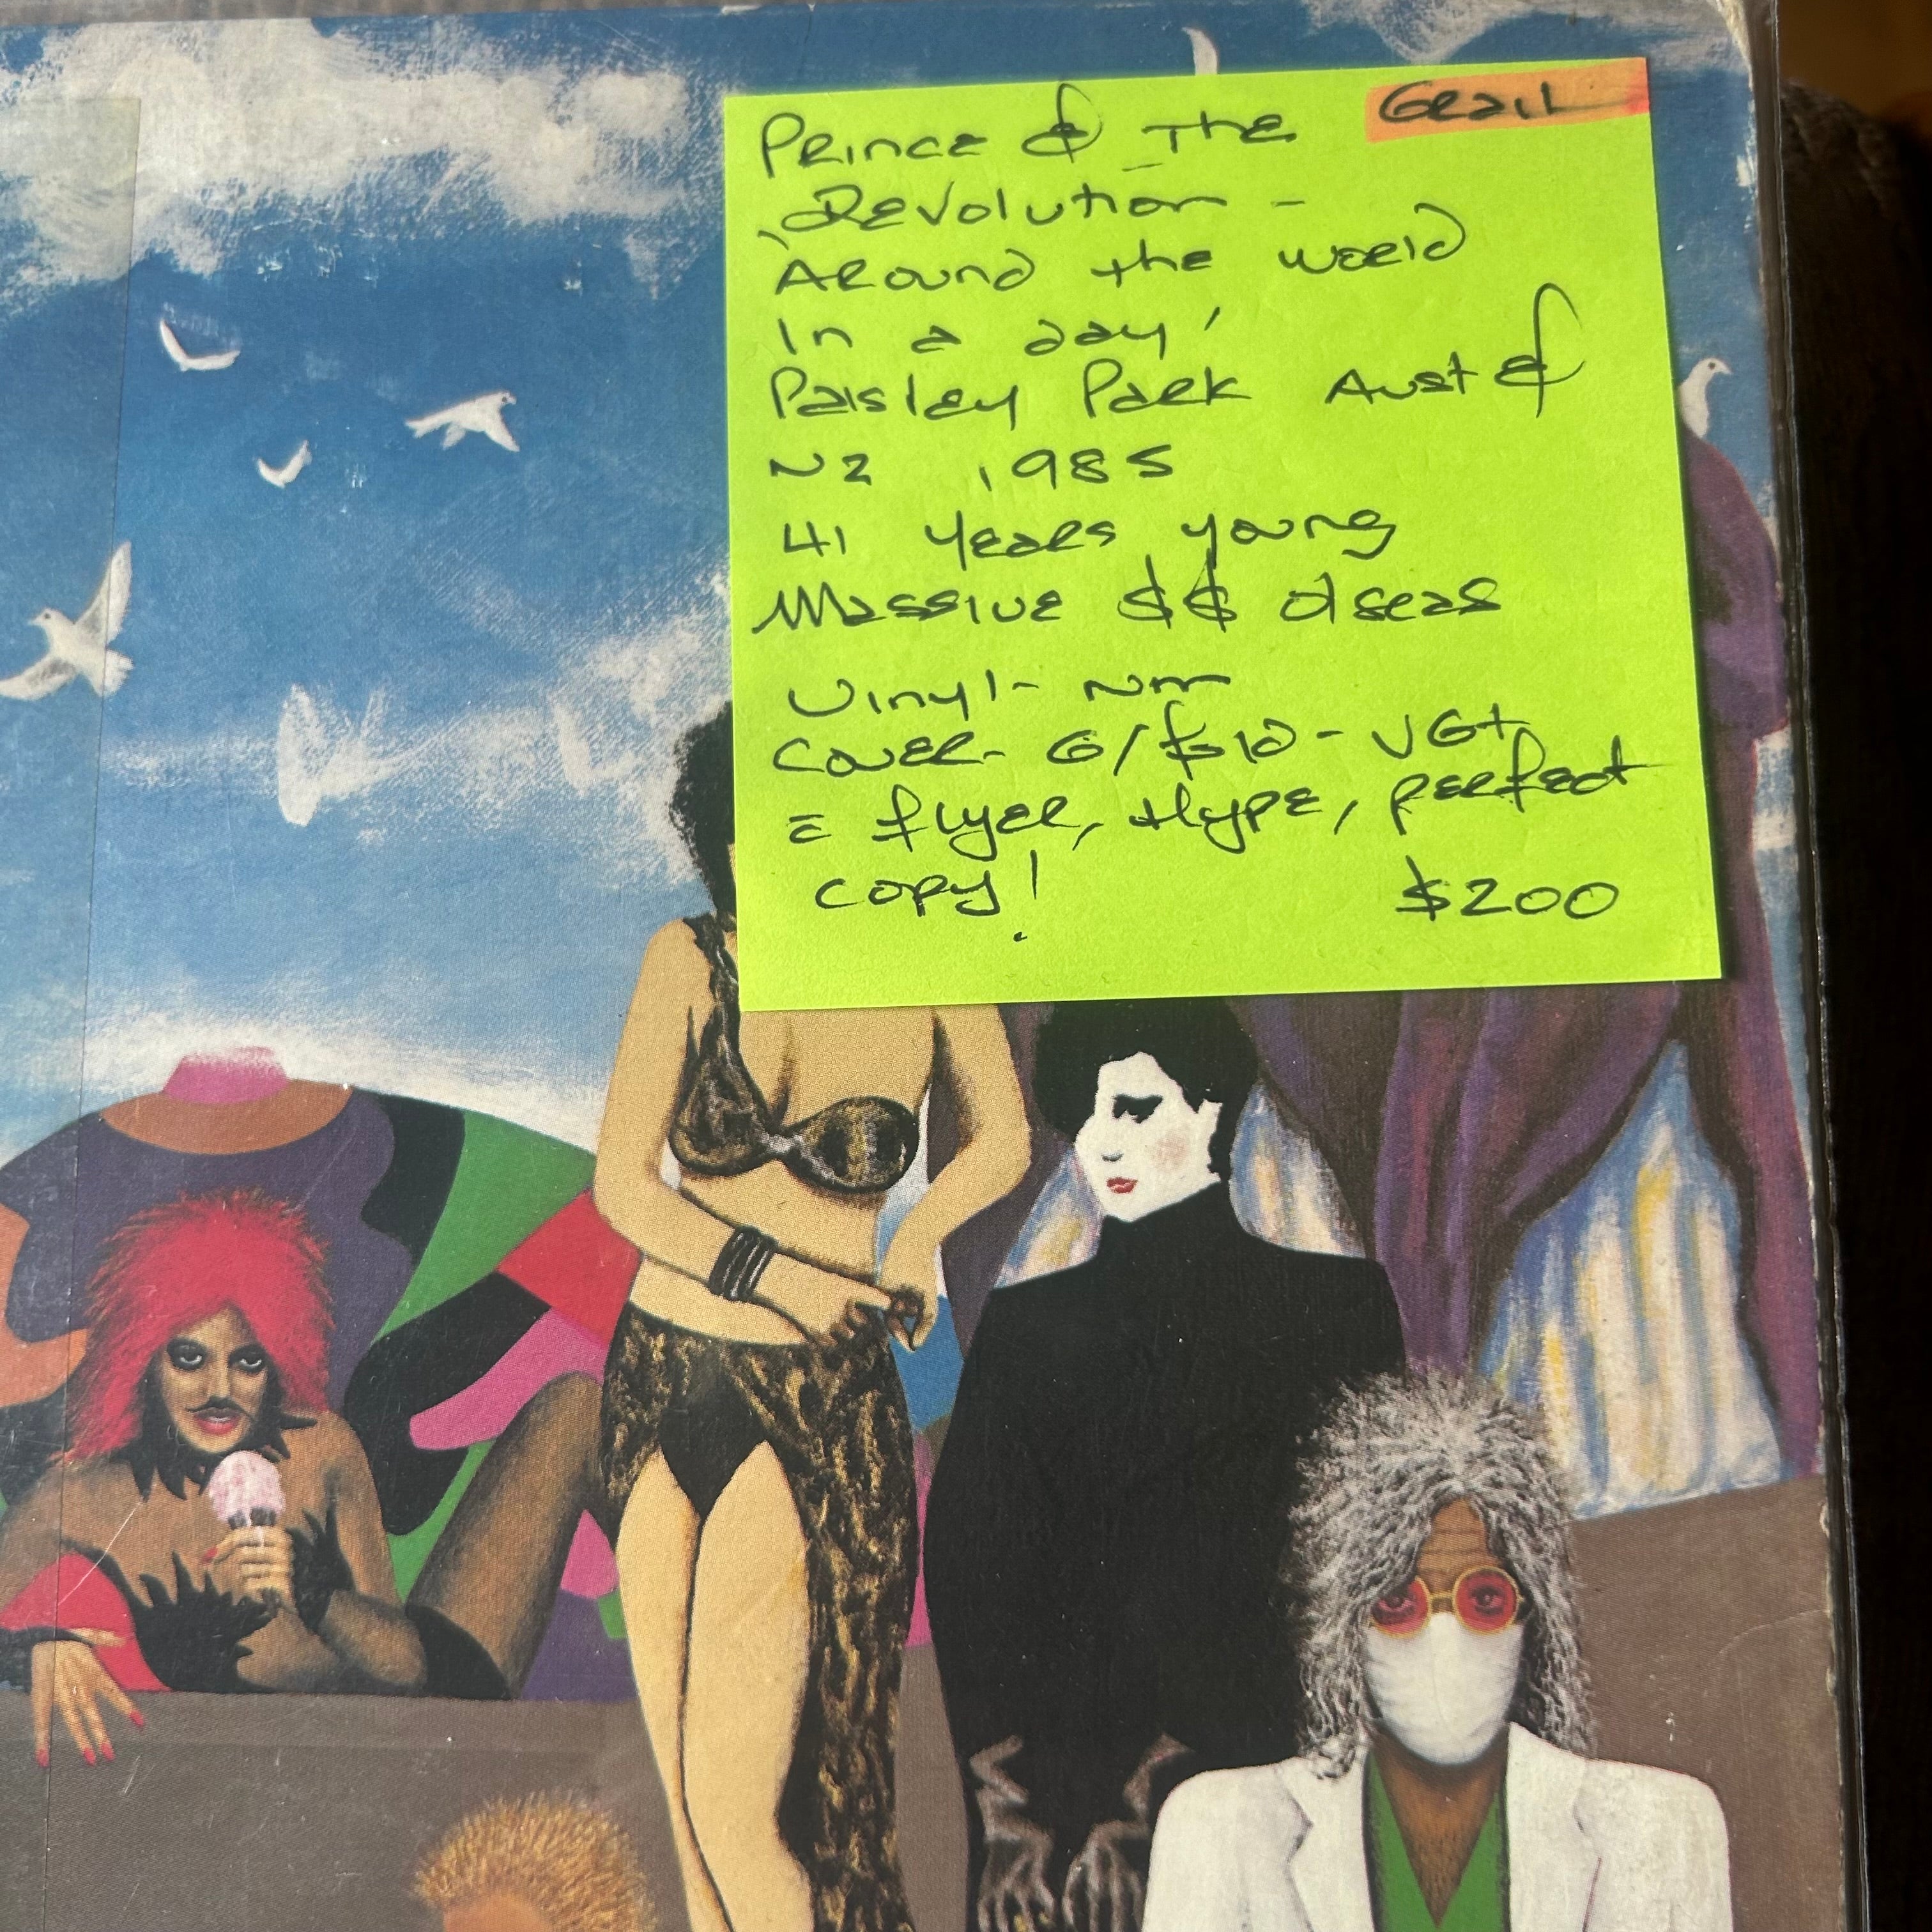 Prince & The
Grail
Revolution -
Around the world
In a day,
Paisley Park Aust &
NZ 1985
41 years young
Massive $$ o/seas
Vinyl- NM
Cover- G/fold - VG+
= flyer, Hype, perfect
copy!
$200